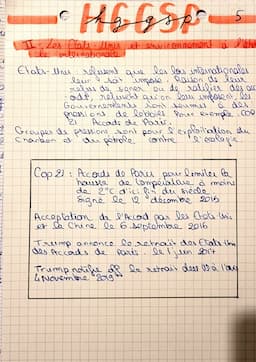 HGGSP 5
hggsp
II - Les Etats Unis et environnement à l'éch
le internationale
Etats-Unis refusent que les lois internationales
leur soit imposé. Raison de leur
refus de signer ou de ratifier des acc
ords, refusent qu'on leur impose. Les
Gouvernements sont soumis à des
pressions de lobbies. Pour exemple : COP
21 : Accords de Paris.
Groupes de pressions sont pour l'exploitation du
Charbon et du pétrole contre l'écologie.
Cop 21 : Accords de Paris pour limiter la
hausse de température à moins
de 2°C d'ici fin du siècle.
Signé le 12 décembre 2015
Acceptation de l'Accord par les Etats Unis
et la Chine le 6 septembre 2016
Trump annonce le retrait des Etats Unis
des Accords de Paris le 1 juin 2017
Trump notifie off le retrait des US à l'
4 Novembre 2019